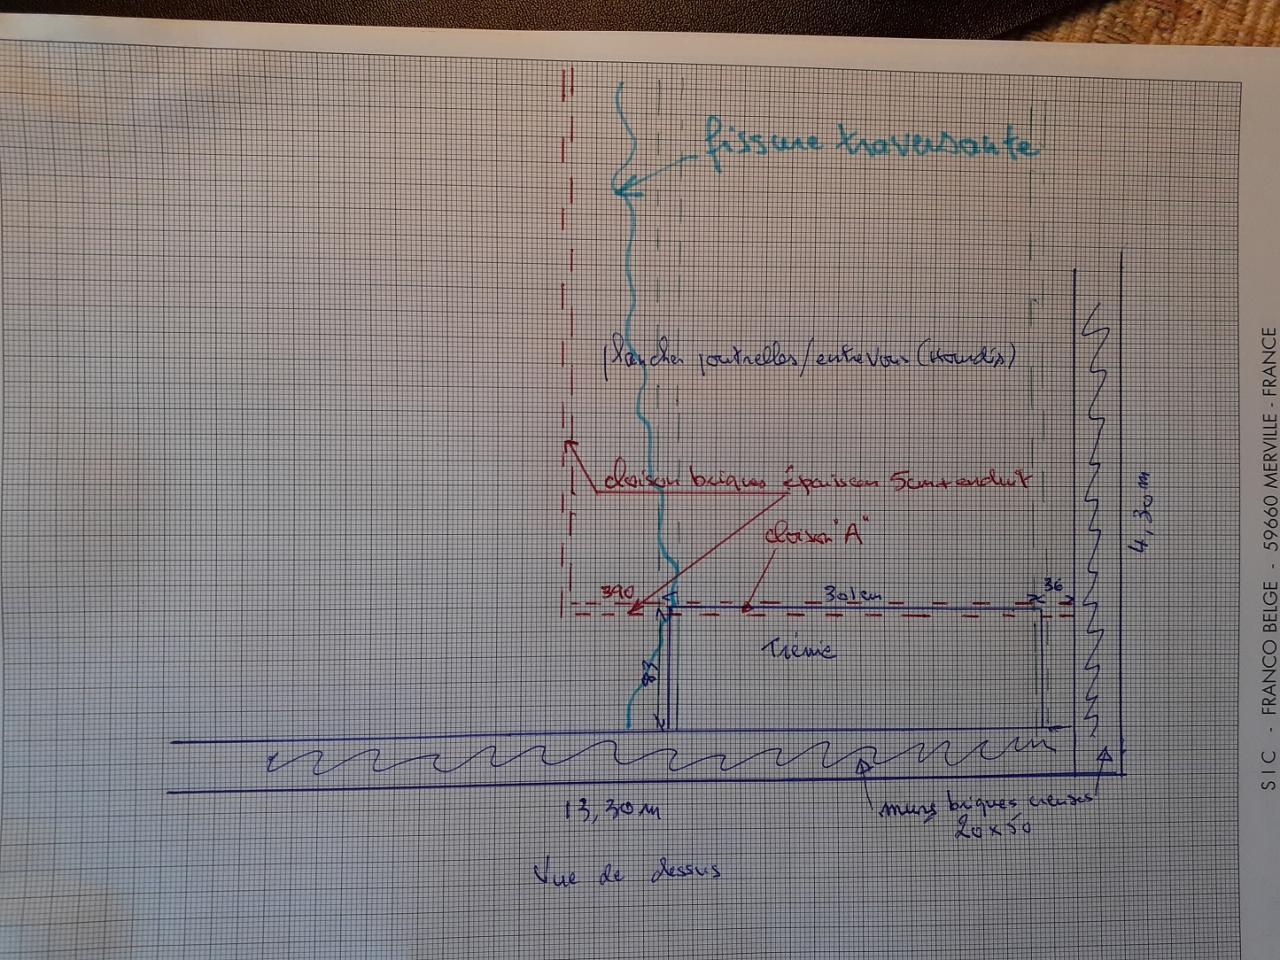 fissure traversante
plancher poutrelles/entrevous (Hourdis)
cloison briques épaisseur 5cm+enduit
cloison "A"
4,30m
390
301cm
36
Trémie
83
murs briques creuses
20x50
13,30m
Vue de dessus
SIC - FRANCO BELGE - 59660 MERVILLE - FRANCE